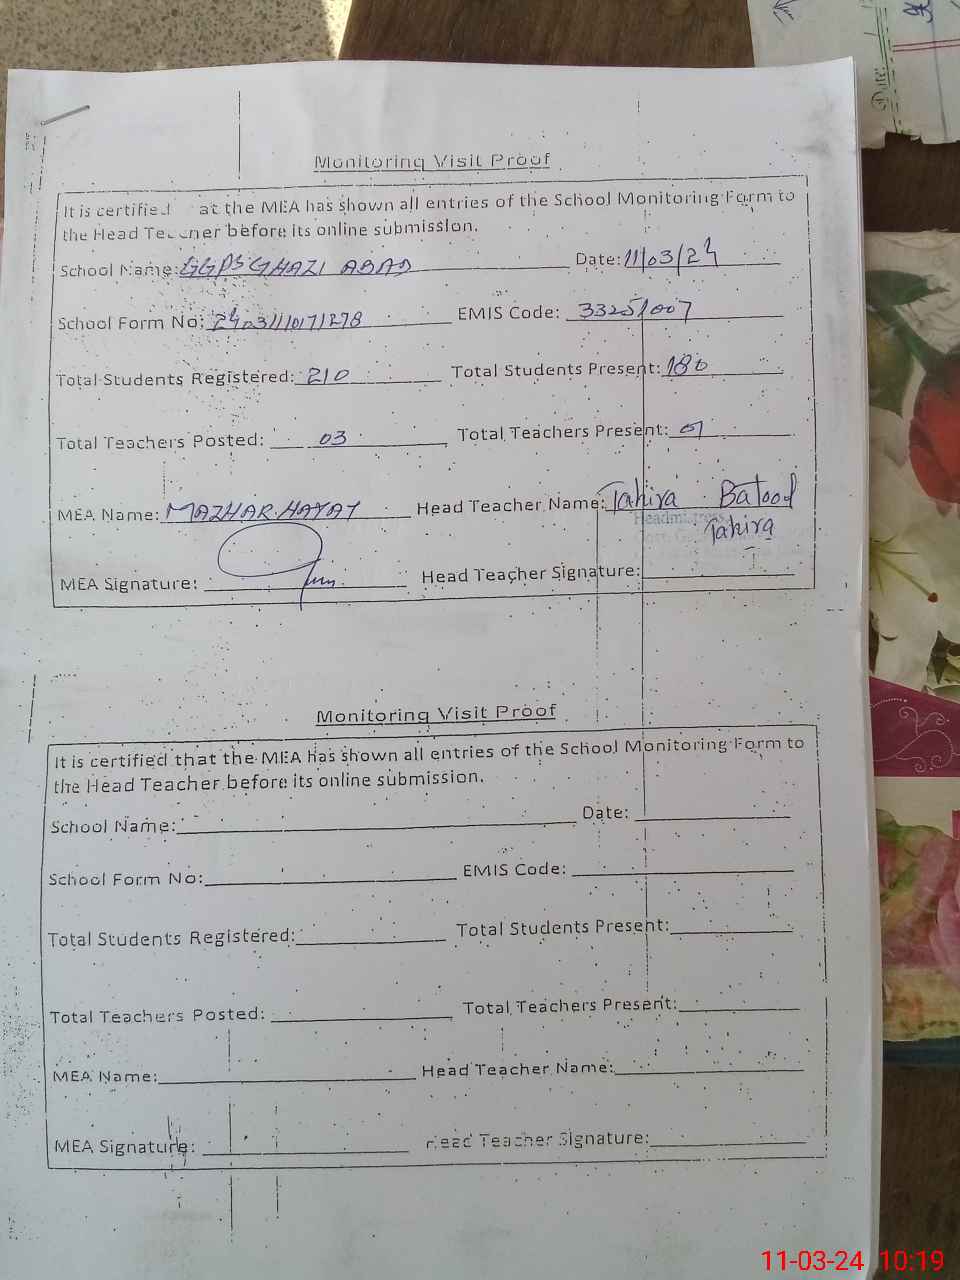 Monitoring Visit Proof
It is certified at the MEA has shown all entries of the School Monitoring Form to
the Head Teacher before its online submission.
School Name: GGPS GHAZI ABAD Date: 11/03/24
School Form No: EMIS Code: 33251007
Total Students Registered: 210 Total Students Present: 180
Total Teachers Posted: 03 Total Teachers Present:
MEA Name: MAZHAR HAYAT Head Teacher Name: Tahira Batool
Headmistress
Tahira
MEA Signature: Head Teacher Signature:
Monitoring Visit Proof
It is certified that the MEA has shown all entries of the School Monitoring Form to
the Head Teacher before its online submission.
School Name: Date:
School Form No: EMIS Code:
Total Students Registered: Total Students Present:
Total Teachers Posted: Total Teachers Present:
MEA Name: Head Teacher Name:
MEA Signature: Head Teacher Signature:
Date:
11-03-24 10:19